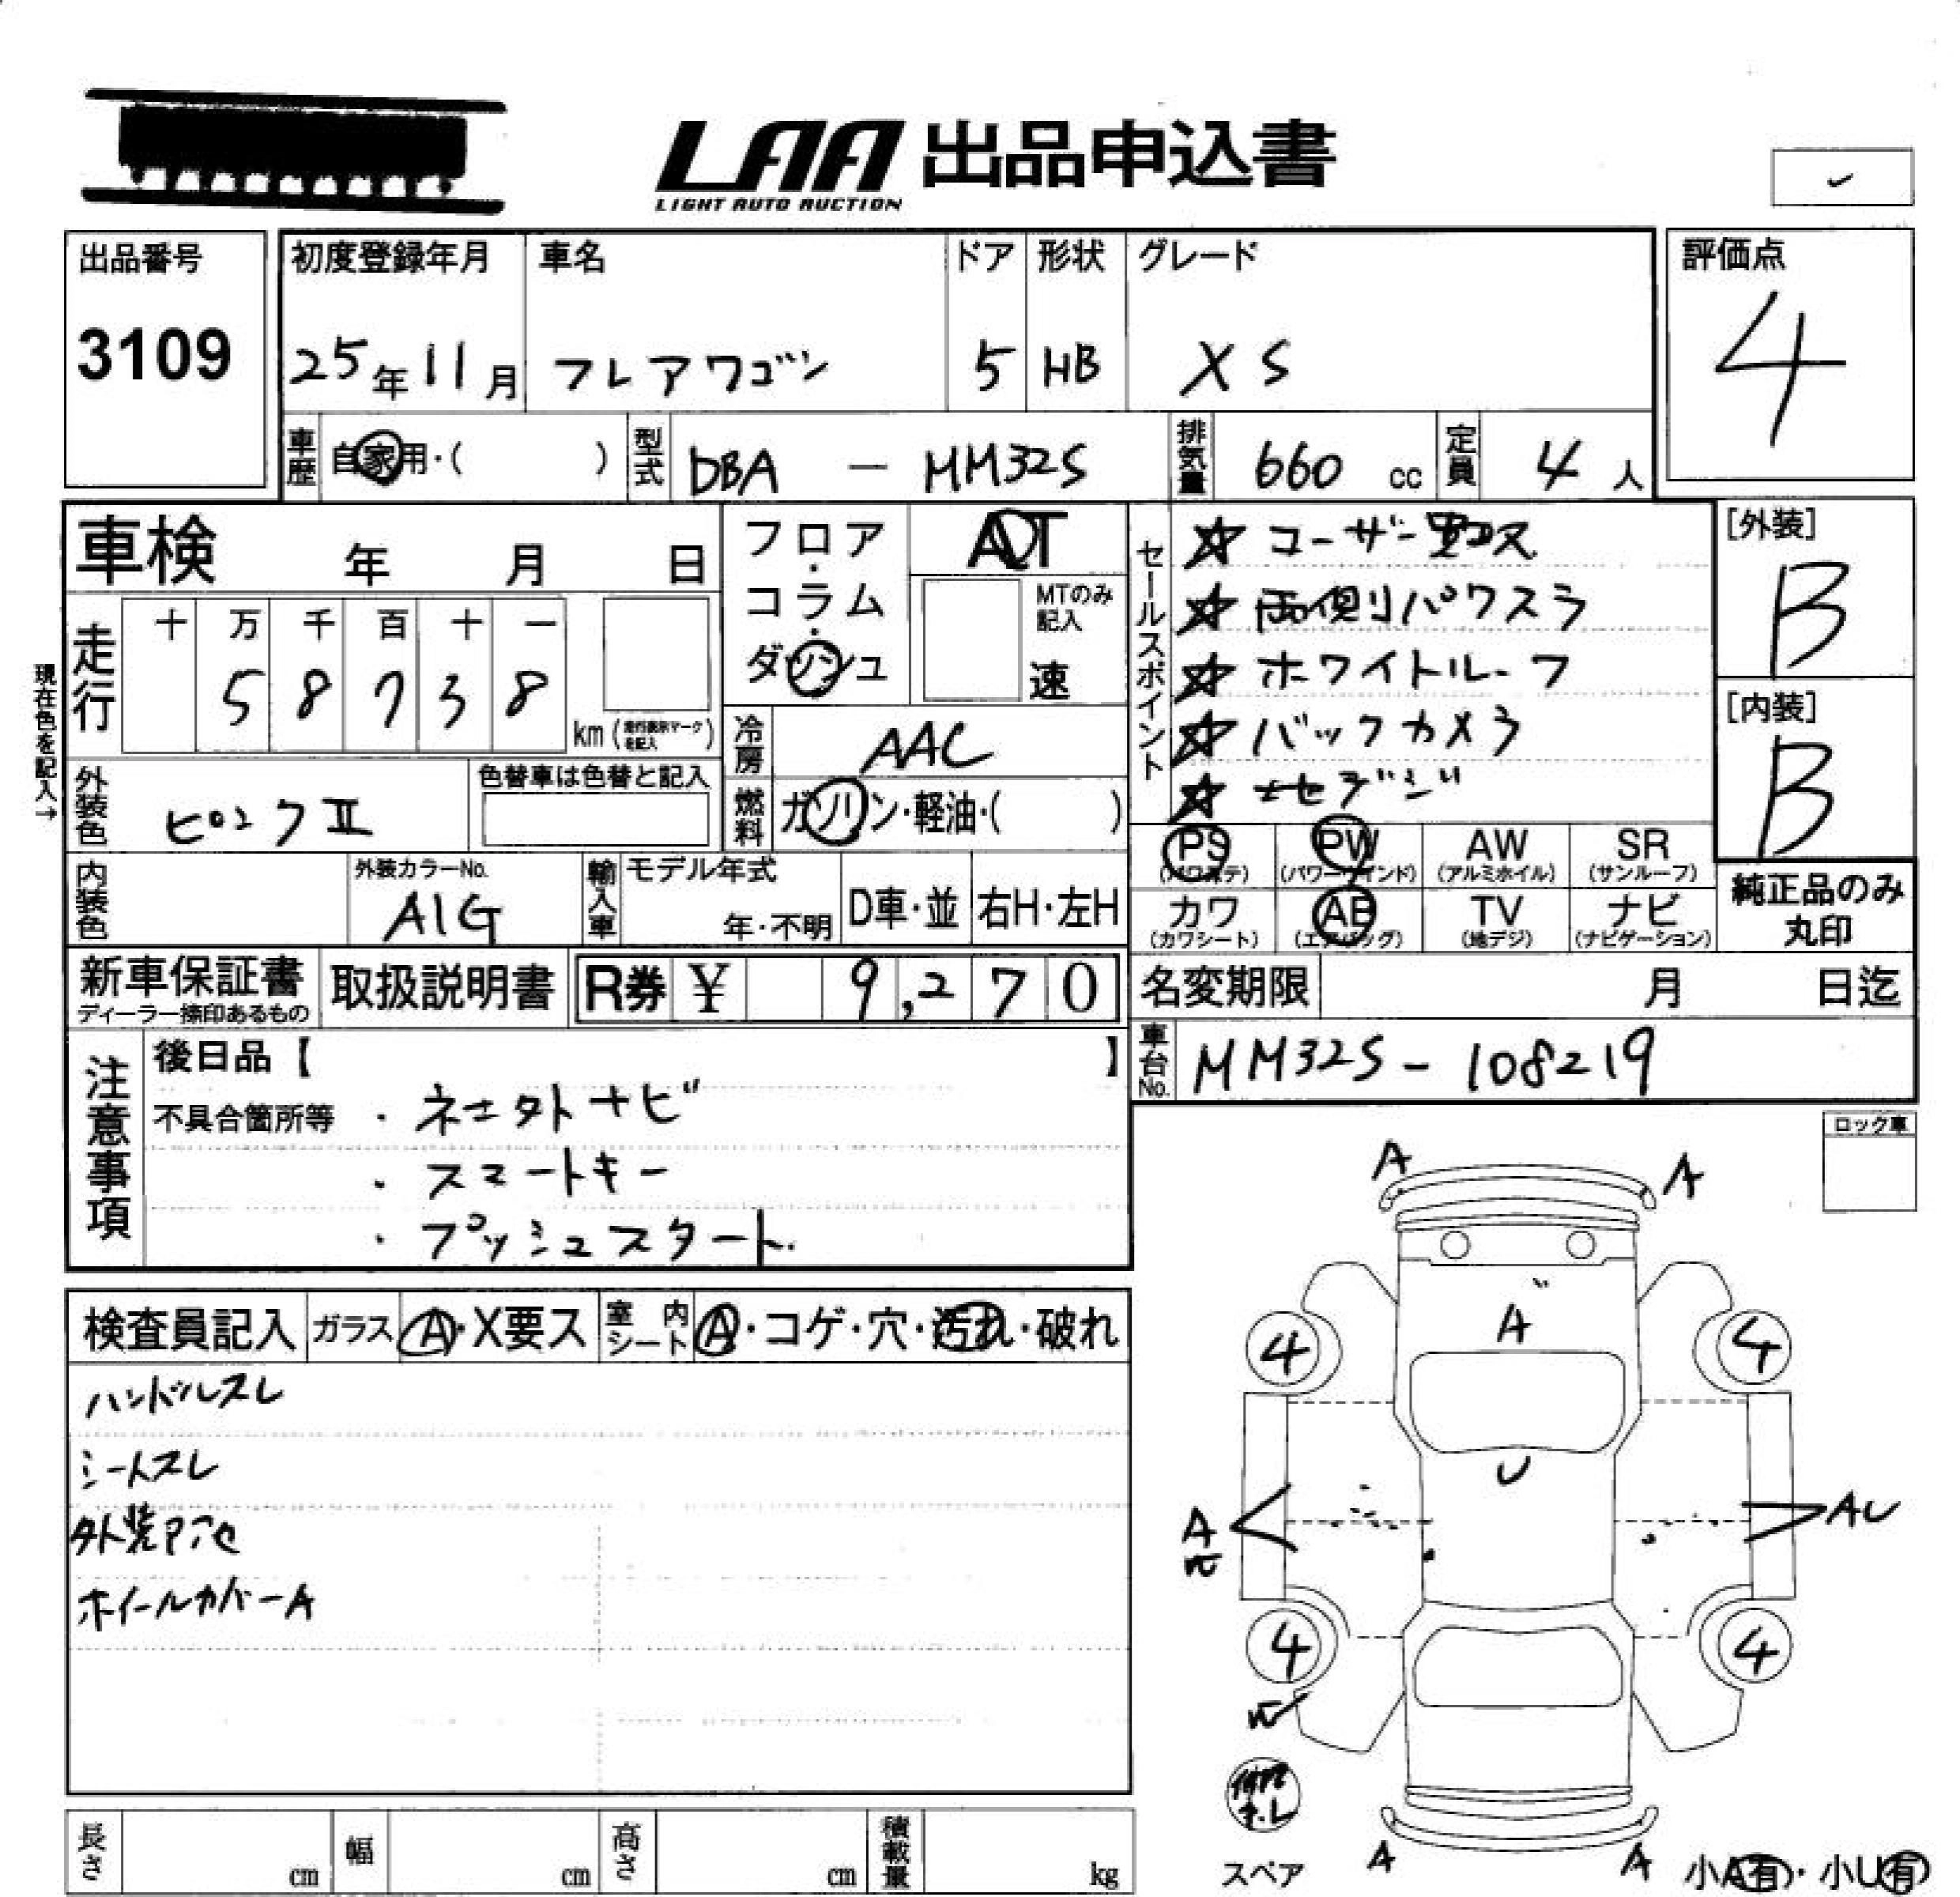 LAA 出品申込書
LIGHT AUTO AUCTION
出品番号
3109
初度登録年月
25年11月
車名
フレアワゴン
ドア
5
形状
HB
グレード
XS
評価点
4
車歴 自家用・( )
型式 DBA — MM32S
排気量 660 cc
定員 4 人
車検 年 月 日
フロア・コラム・ダッシュ
AT
MTのみ記入
速
走行
十 万 千 百 十 一
5 8 7 3 8
km
現在色を記入→
冷房 AAC
燃料 ガソリン・軽油・( )
外装色 ピンクⅡ
色替車は色替と記入
内装色
外装カラーNo.
A1G
輸入車
モデル年式
年・不明
D車・並
右H・左H
セールスポイント
☆ ユーザー買取
☆ 両側パワスラ
☆ ホワイトルーフ
☆ バックカメラ
[外装]
B
[内装]
B
PS (パワステ)
PW (パワーウインド)
AW (アルミホイル)
SR (サンルーフ)
カワ (カワシート)
AB (エアバッグ)
TV (地デジ)
ナビ (ナビゲーション)
純正品のみ丸印
新車保証書
ディーラー捺印あるもの
取扱説明書
R券 ¥ 9,270
名変期限 月 日迄
車台No. MM32S - 108219
注意事項
後日品【 】
不具合箇所等
・スマートキー
・プッシュスタート
ロック車
検査員記入
ガラス A・X要ス
室内シート A・コゲ・穴・汚れ・破れ
ハンドルスレ
シートスレ
ホイールカバーA
A
A
A
4
4
U
A
AU
4
4
スペア
A
A
小A有・小U有
長さ cm
幅 cm
高さ cm
積載量 kg